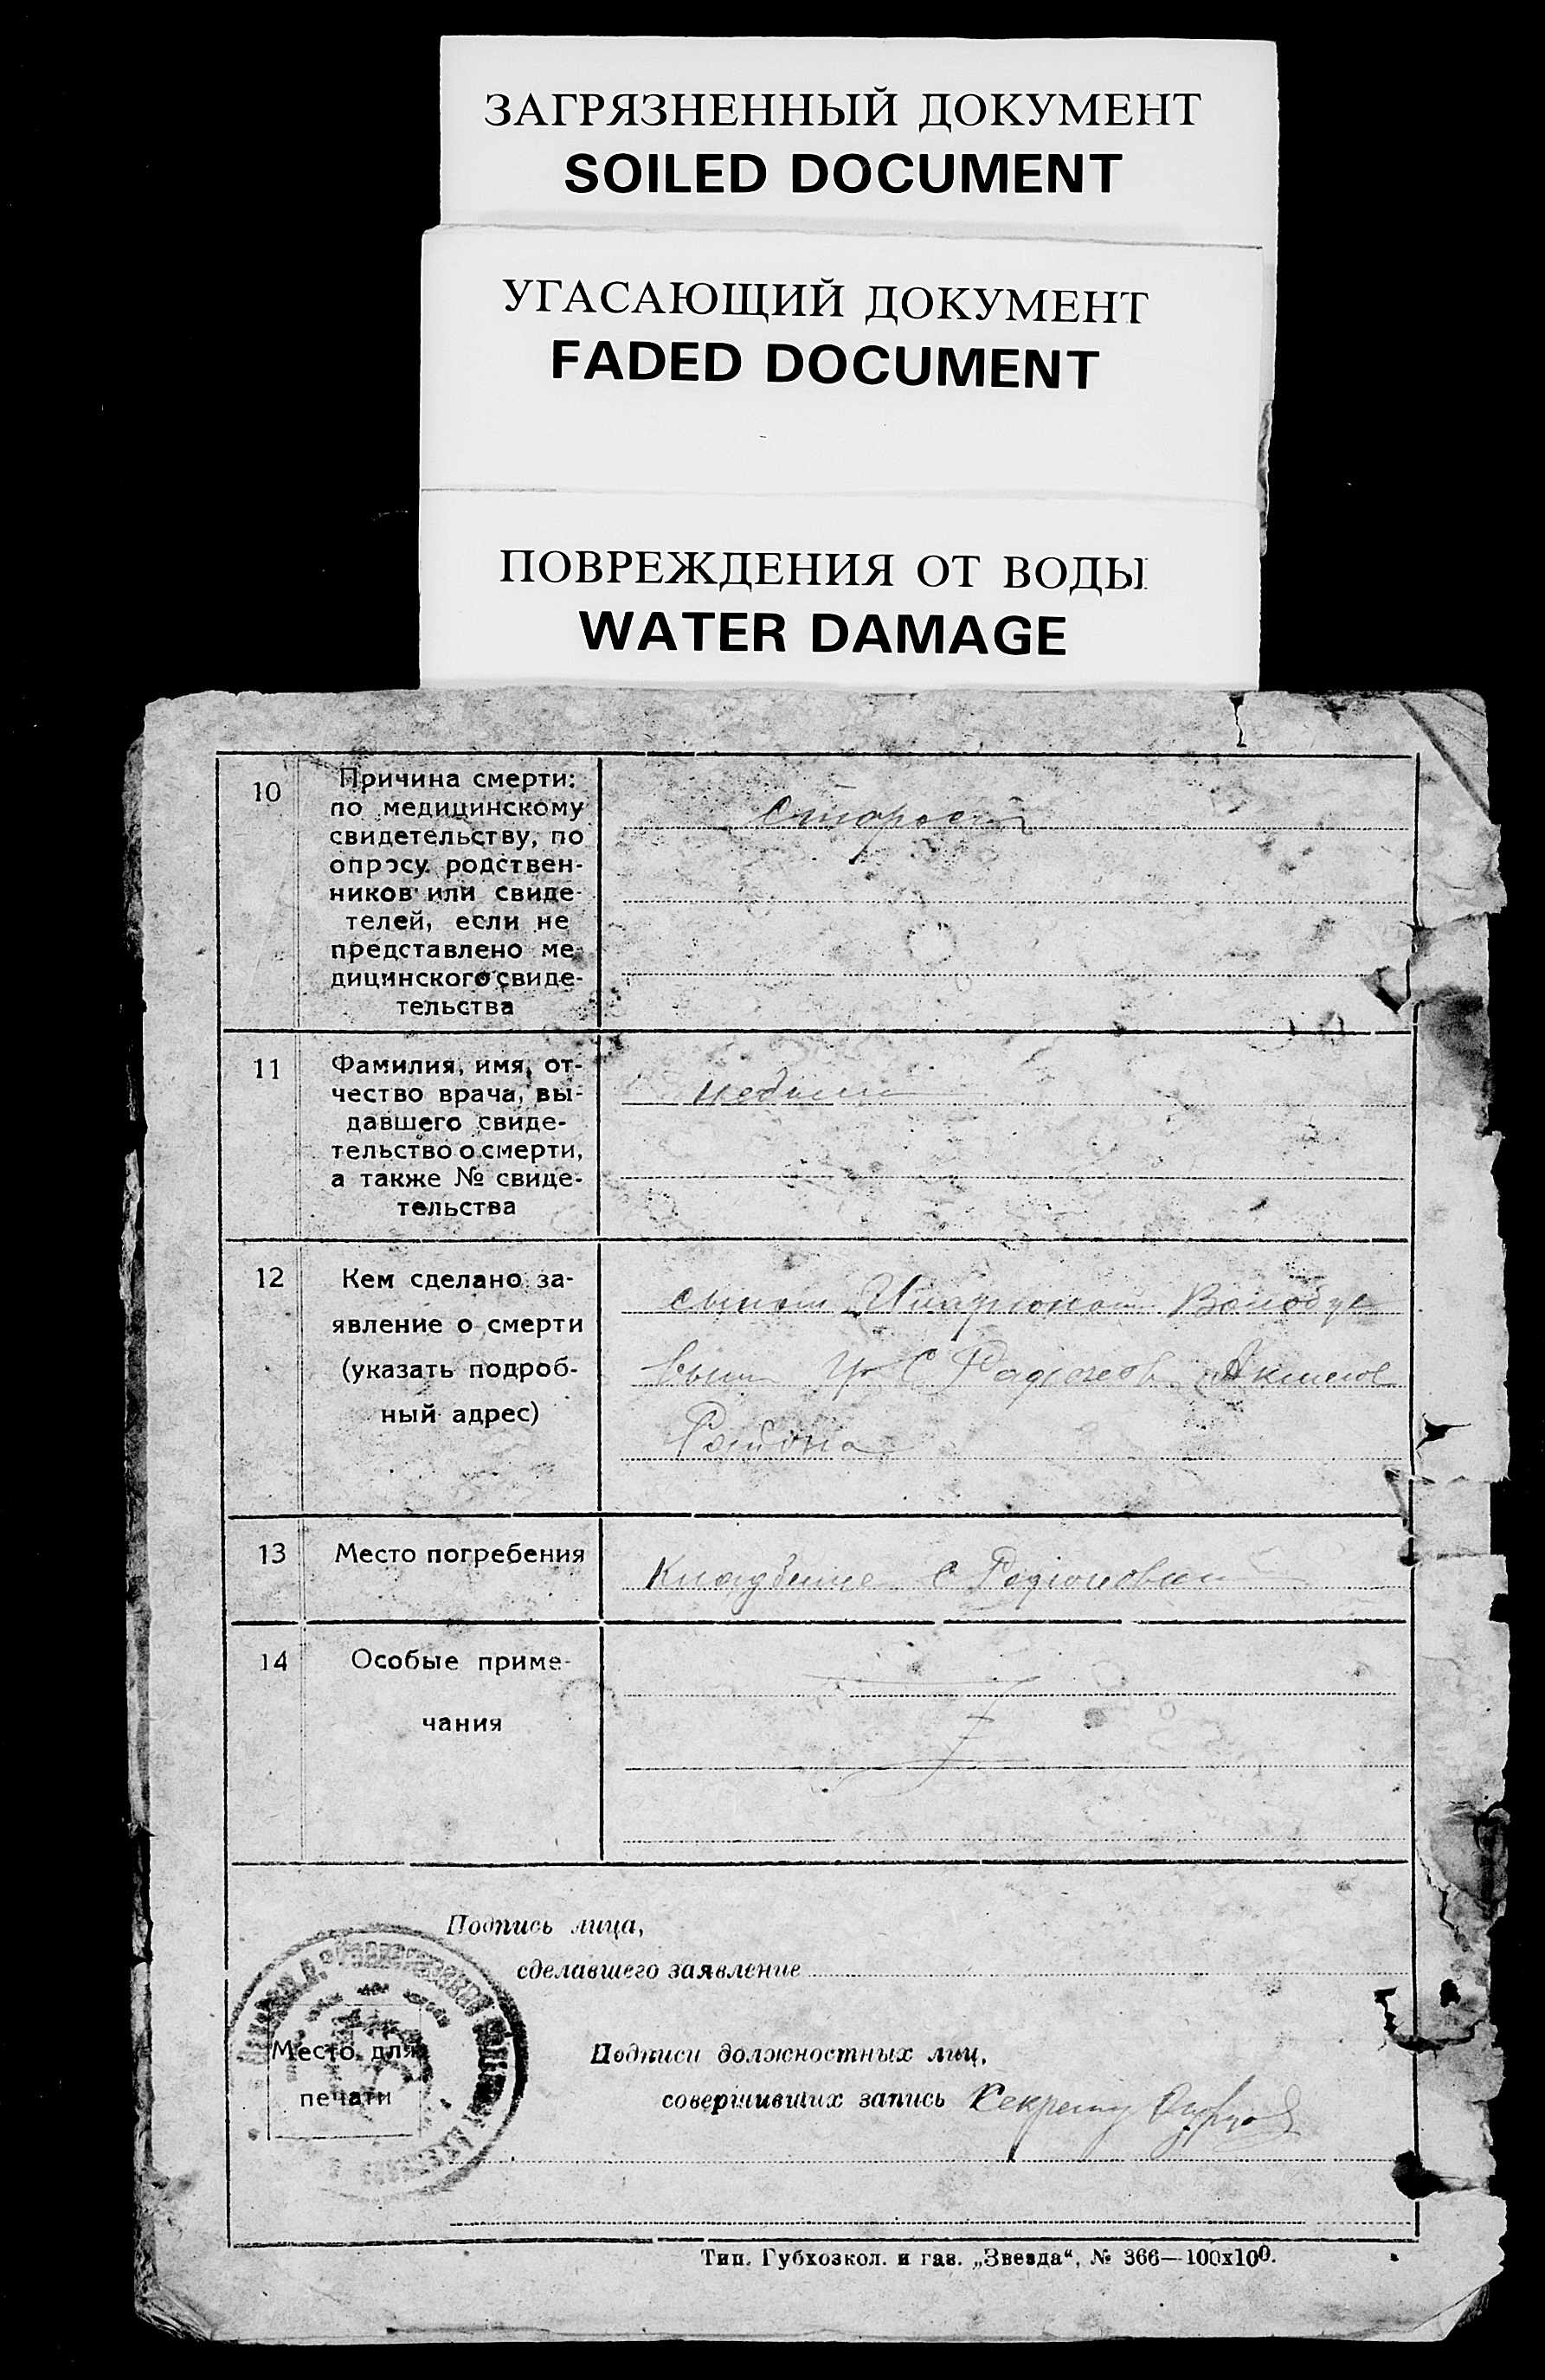 ЗАГРЯЗНЕННЫЙ ДОКУМЕНТ
SOILED DOCUMENT
УГАСАЮЩИЙ ДОКУМЕНТ
FADED DOCUMENT
ПОВРЕЖДЕНИЯ ОТ ВОДЫ
WATER DAMAGE
10
Причина смерти:
по медицинскому
свидетельству, по
опросу родствен-
ников или свиде-
телей, если не
представлено ме-
дицинского свиде-
тельства
11
Фамилия, имя, от-
чество врача, вы-
давшего свиде-
тельство о смерти,
а также № свиде-
тельства
12
Кем сделано за-
явление о смерти
(указать подроб-
ный адрес)
сыном
13
Место погребения
Кладбище с
14
Особые приме-
чания
Подпись лица,
сделавшего заявление
Место для
печати
Подписи должностных лиц,
совершивших запись
Тип. Губхозкол. и газ. „Звезда“, № 366—100х100.